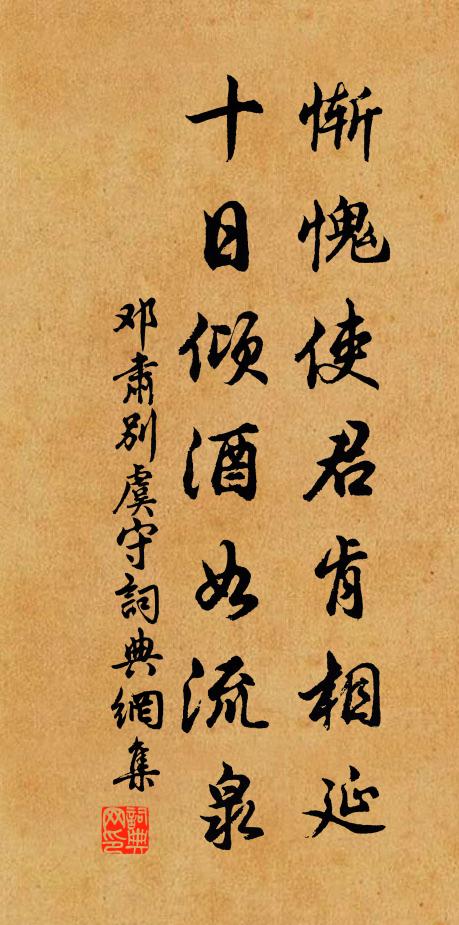 惭愧使君肯相延
十日倾酒如流泉
邓肃别虞守詞典網集
詞典网印